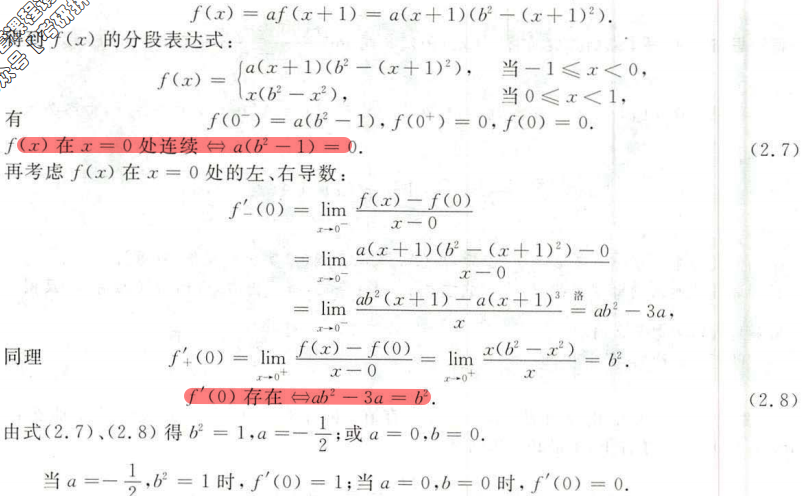 f(x) = af(x+1) = a(x+1)(b² - (x+1)²).
得到 f(x) 的分段表达式:
f(x) = { a(x+1)(b² - (x+1)²), 当 -1 ⩽ x < 0,
x(b² - x²), 当 0 ⩽ x < 1,
有 f(0⁻) = a(b² - 1), f(0⁺) = 0, f(0) = 0.
f(x) 在 x = 0 处连续 ⇔ a(b² - 1) = 0. (2.7)
再考虑 f(x) 在 x = 0 处的左、右导数:
f′₋(0) = lim_{x→0⁻} (f(x) - f(0))/(x - 0)
= lim_{x→0⁻} (a(x+1)(b² - (x+1)²) - 0)/(x - 0)
= lim_{x→0⁻} (ab²(x+1) - a(x+1)³)/x 洛= ab² - 3a,
同理 f′₊(0) = lim_{x→0⁺} (f(x) - f(0))/(x - 0) = lim_{x→0⁺} x(b² - x²)/x = b².
f′(0) 存在 ⇔ ab² - 3a = b². (2.8)
由式(2.7)、(2.8) 得 b² = 1, a = -1/2; 或 a = 0, b = 0.
当 a = -1/2, b² = 1 时, f′(0) = 1; 当 a = 0, b = 0 时, f′(0) = 0.